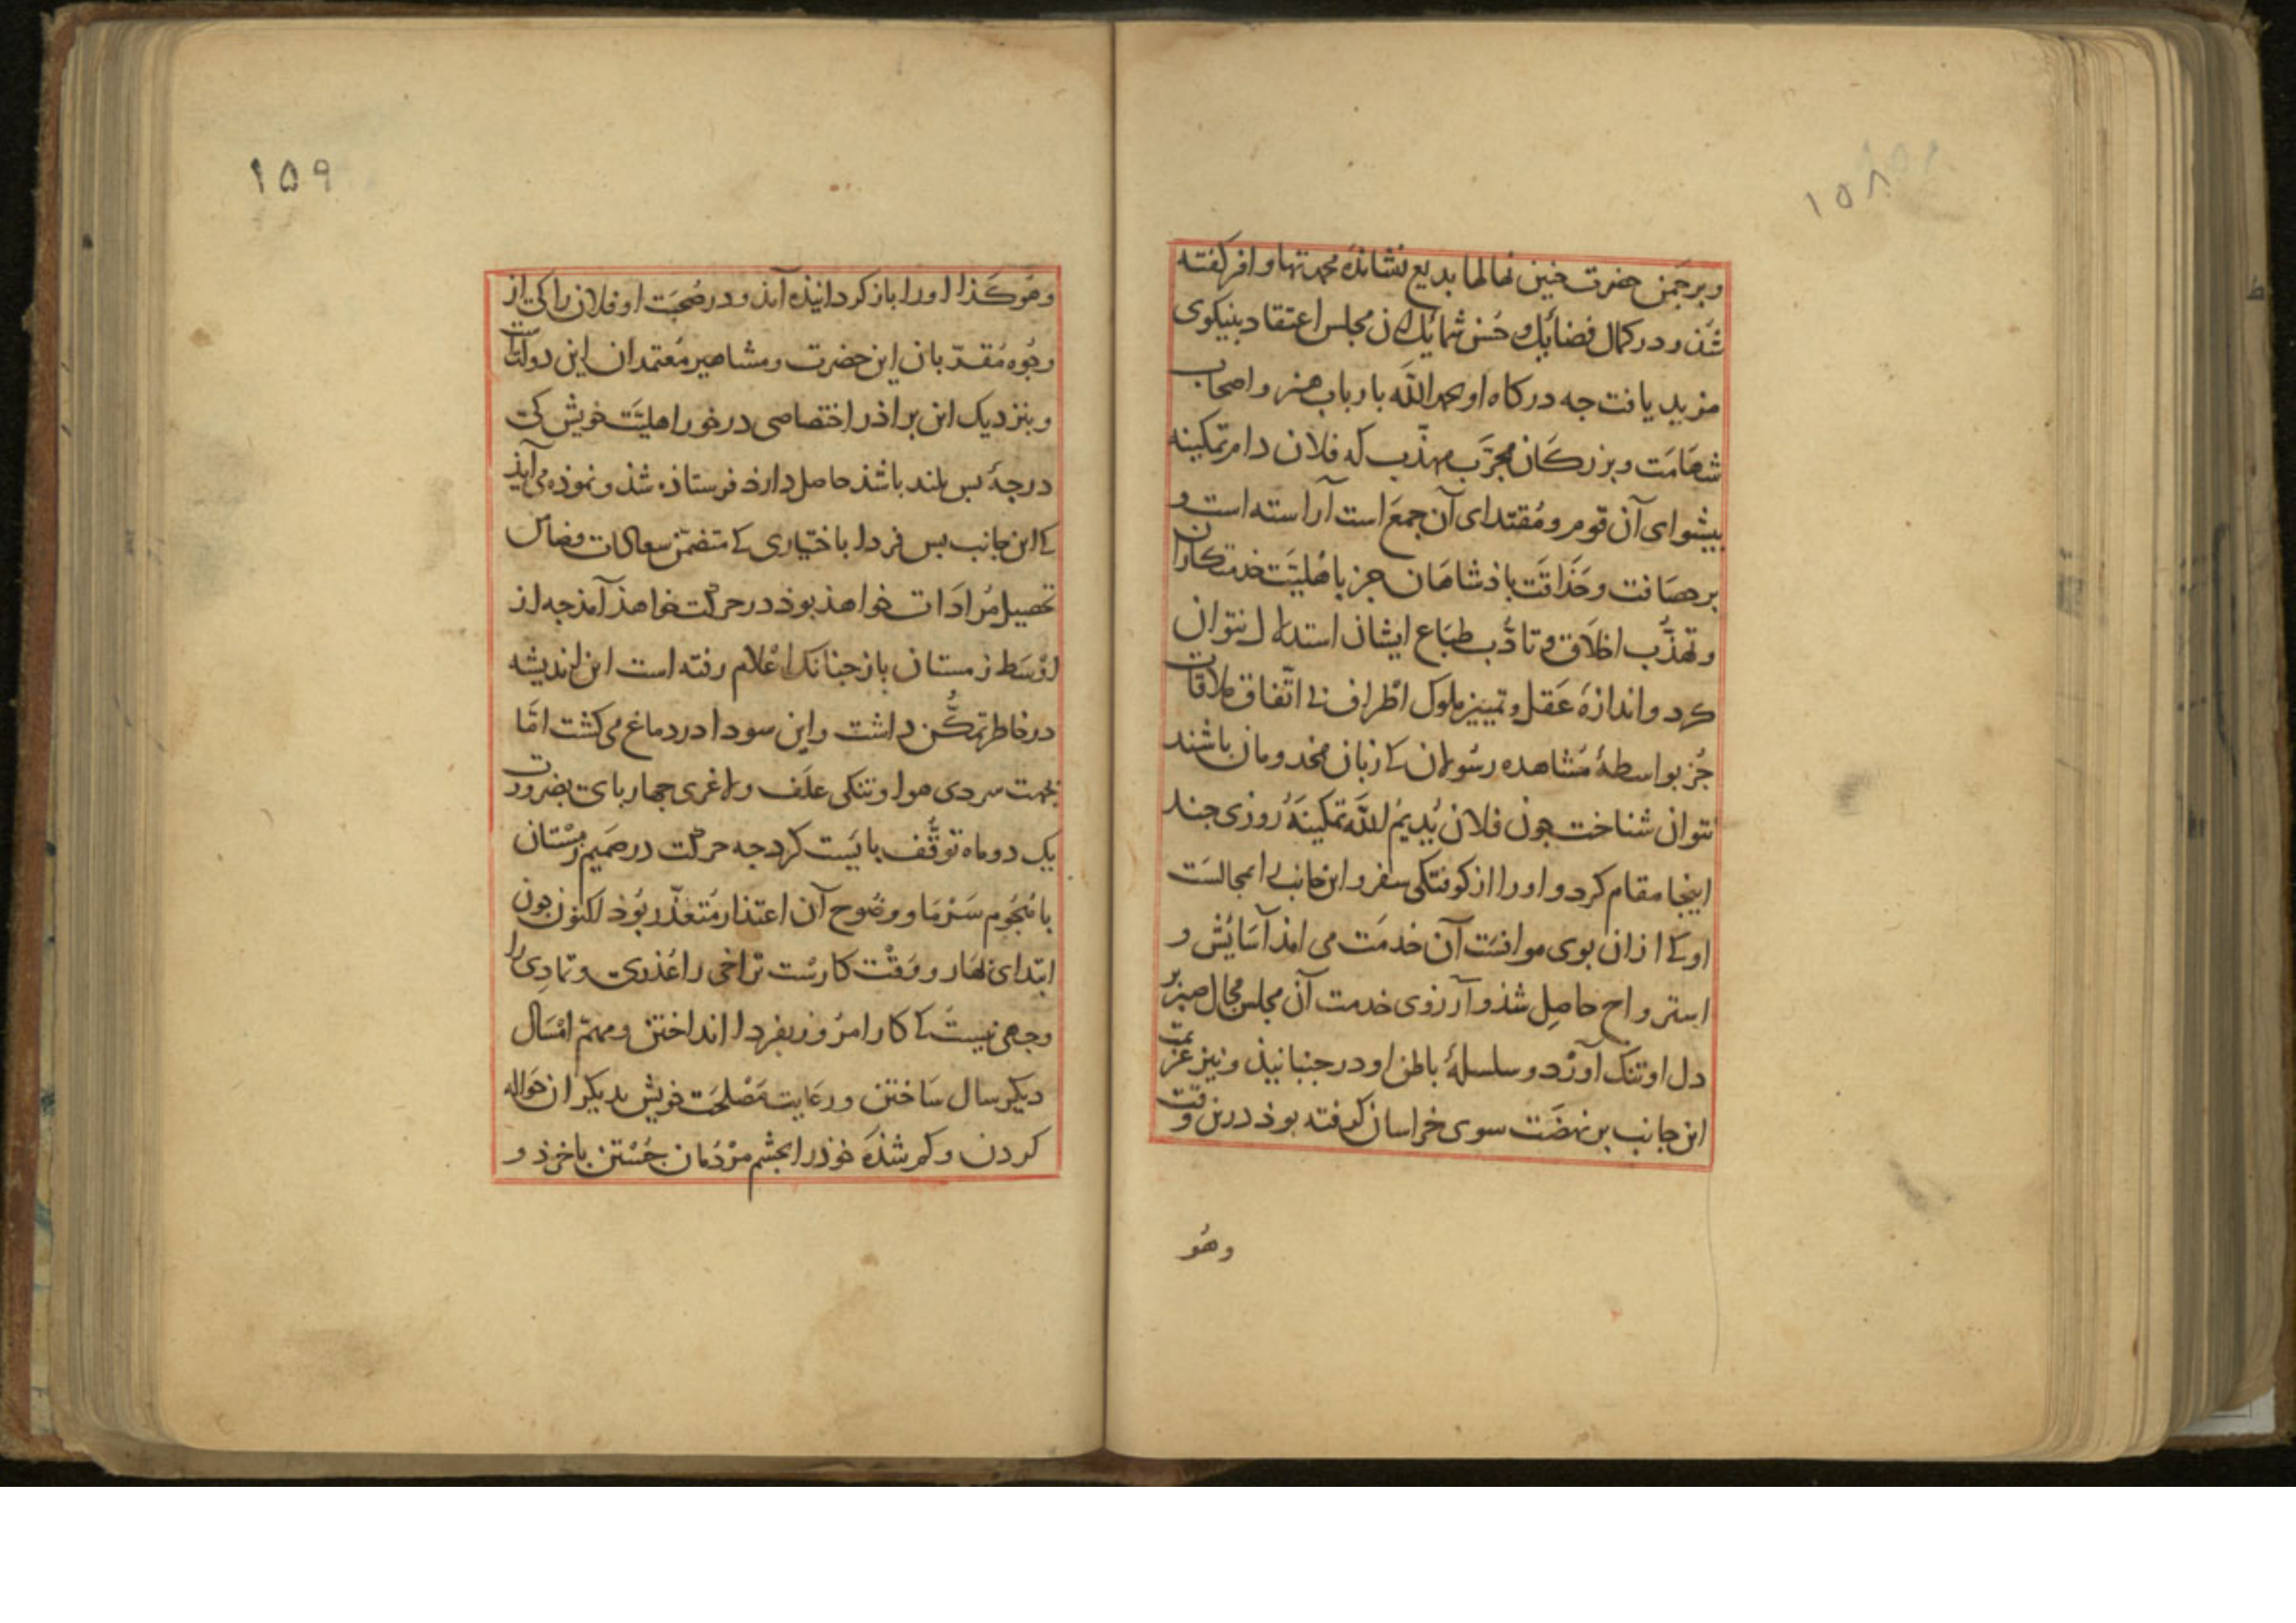 ۱۵۸
و بر چمن حضرت چنین نهالها بدیع نشانده محمدتها و افر گفته
شد و در کمال فضایل و حسن شمایل آن مجلس اعتقاد بنیکوی
مزید یافت جه درکاه او بحمد الله بارباب هنر و اصحاب
شهَامَت و بزرکان مجرَّب مهذّب که فلان دام تمکینه
بیشوای آن قوم و مُقتدای آن جمع است آراسته است و
بر حصَافت و حَذَاقَت باذشاهَان جز باهلیَّت خدمتکاران
و تهذّب اخلاق و تادّب طباع ایشان استدلال نتوان
کرد و اندازهٔ عَقل و تمییز ملوک اطراف بی اتّفاق ملاقات
جُز بواسطهٔ مُشاهده رسُولان کی زبان مخدومان باشند
نتوان شناخت جون فلان یُدِیمُ اللهُ تمکینَهُ رُوزی جند
اینجا مقام کرد و اورا از کوفتکی سفر و این جانب را بمجالسَت
او کی از ان بوی موانسَت آن خدمَت می امذ آسَایش و
استرواح حاصِل شذ و آرزوی خدمت آن مجلس مجال صبر بر
دل او تنک آورْد و سلسلهٔ باطن او در جنبانیذ و نیز عزیمت
این جانب بر نهضَت سوی خراسان کرفته بوذ درین وقت
وهُو
۱۵۹
وهُو کَذا اورا باز کردانیذه آمذ و در صُحبَت او فلان را کی از
وجُوه مُقدّبان این حضرت و مشاهیر مُعتمدان این دولت است
و بنزدیک این براذر اختصاصی در خور اهلیَّت خویش کی
درجهٔ بس بلند باشذ حاصل دارذ فرستاذه شذ و نموذه می آیذ
کی این جانب بس فردا باختیاری کی متضمّن سعادات و
تحصیل مُرادَات خواهذ بوذ در حرکت خواهذ آمذ جه از
اوْسَط زمستان باز جنانک اعْلام رفته است این اندیشه
در خاطر تمکُّن داشت و این سودا در دماغ می کشت امّا
بجهت سردی هوا و تنکی علَف و لاغری جهاربای بضرورت
یک دو ماه توقُّف بایَست کرد جه حرکت در صَمیم زمسْتان
با هُجُوم سَرْمَا و وضُوح آن اعتذار مُتعذّر بُوذ اکنون جون
ابتدای بهَار و وَقْت کارست تراخی را عُذری و تمادِی را
وجهی نیست کی کار امرُوز بفردا انداختن و مهمّ امْسَال
دیکر سال سَاختن و رعَایت مَصْلحَت خویش بدیکران حَواله
کردن و کم شذهٔ خوذ را بجشم مرْدُمان جُسْتن باخرذ و